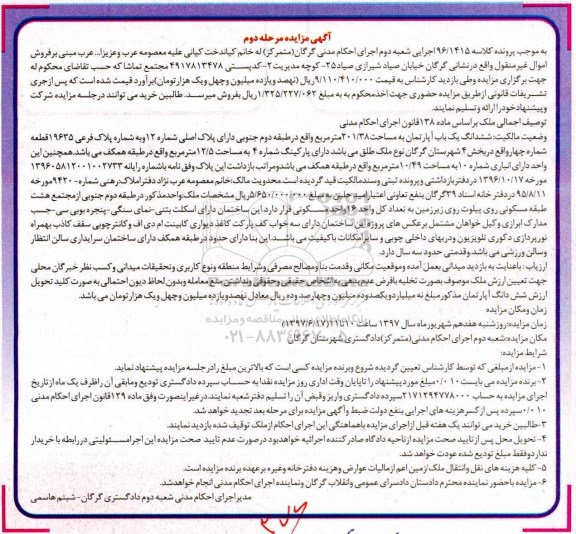 آگهی مزایده مرحله دوم
به موجب پرونده کلاسه ۹۶/۱۴۱۵اجرایی شعبه دوم اجرای احکام مدنی گرگان(متمرکز) له خانم کیاندخت کیانی علیه معصومه عرب وعزیزا... عرب مبنی برفروش
اموال غیرمنقول واقع درنشانی گرگان خیابان صیاد شیرازی صیاد۲۵- کوچه مدیریت۲-کدپستی ۴۹۱۷۸۱۳۴۷۸ مجتمع تماشا که حسب تقاضای محکوم له
جهت برگزاری مزایده وطی بازدید کارشناس به قیمت ۹/۱۱۰/۴۱۰/۰۰۰ریال (نهصد ویازده میلیون وچهل ویک هزارتومان)برآورد قیمت شده است که پس از جری
تشریفات قانونی ازطریق مزایده حضوری جهت اخذمحکوم به به مبلغ ۱/۳۲۵/۲۲۷/۰۶۲ ریال بفروش میرسد. طالبین خرید می توانند درجلسه مزایده شرکت
وپیشنهادخودرا ارائه و تسلیم نمایند.
توصیف اجمالی ملک براساس ماده ۱۳۸قانون اجرای احکام مدنی
وضعت مالکیت: ششدانگ یک باب آپارتمان به مساحت ۲۰۱/۳۸مترمربع واقع درطبقه دوم جنوبی دارای پلاک اصلی شماره ۱۲ وبه شماره پلاک فرعی ۱۹۶۳۵قطعه
شماره چهارواقع دربخش۴ شهرستان گرگان نوع ملک طلق می باشد دارای پارکینگ شماره ۴ به مساحت ۱۲/۵مترمربع واقع درطبقه همکف می باشد.همچنین این
واحد دارای انباری شماره ۱۰ به مساحت ۱۰/۴۹ مترمربع واقع درطبقه همکف می باشدومراتب بازداشت این پلاک وفق نامه باشماره رایانه ۱۳۹۶۰۵۸۱۲۰۰۱۰۰۲۷۳۳
مورخه ۱۳۹۶/۱۰/۱۷ دردفتربازداشتی وپرونده ثبتی وسندمالکیت قید گردیده است.محدودیت مالک:خانم معصومه عرب نژاد دفتراملاک رهنی شماره-۹۴۲۰ مورخه
۹۵/۸/۱۱ دردفتر خانه اسناد ۳۹ گرگان بنفع تعاونی اعتبار
طبقه مسکونی روی پیلوت روی زیرزمین به تعداد کل واحد ۱۶ واحد مسکونی قرار دارد این ساختمان دارای اسکلت بتنی-نمای سنگی-پنجره یوپی سی-جسب
مدارک ابرازی وکیل خواهان مشتمل برعکس های پروژه این ساختمان دارای سه خواب کف پارکت کاغذ دیواری کابینت ام دی اف وکانترچوبی سقف کاذب بهمراه
نورپردازی دکوری تلویزیون ودربهای داخلی چوبی و سایرامکانات باکیفیت می باشد.این بنا دارای حدود درطبقه همکف دارای ساختمان سرایداری سالن انتظار
وسالن ورزشی می باشد.وقدمتی حدود سه سال دارد.
ارزیاب: باعنایت به بازدید میدانی بعمل آمده وموقعیت مکانی وقدمت بنا ومصالح مصرفی وشرایط منطقه ونوع کاربری وتحقیقات میدانی وکسب نظر خبرگان محلی
جهت تعیین ارزش ملک موصوف بصورت تخلیه بافرض عدم بدهی به اشخاص حقیقی وحقوقی ونداشتن منع معامله وبدون لحاظ دیون احتمالی به صورت کلید تحویل
ارزش شش دانگ آپارتمان مذکور مبلغ نه میلیارد ویکصدوده میلیون وچهارصد وده ریال معادل نهصدویازده میلیون وچهل ویک هزار تومان می باشد.
زمان ومکان مزایده
زمان مزایده:روز شنبه هفدهم شهریورماه سال ۱۳۹۷ ساعت ۱۰ تا۱۱(۱۳۹۷/۶/۱۷)
مکان مزایده:شعبه دوم اجرای احکام مدنی(متمرکز)دادگستری شهرستان گرگان
شرایط مزایده:
۱- مزایده ازمبلغی که توسط کارشناس تعیین گردیده شروع وبرنده مزایده کسی است که بالاترین مبلغ رادرجلسه مزایده پیشنهاد نماید.
۲- برنده مزایده می بایست ۰/۰۱۰مبلغ مورد پیشنهاد را تاپایان وقت اداری روز مزایده نقدا به حساب سپرده دادگستری تودیع ومابقی آن راظرف یک ماه ازتاریخ
اجرای مزایده به حساب ۲۱۷۱۲۹۴۷۷۸۰۰۰سپرده دادگستری واریز وقبض آن را تسلیم دفترشعبه نمایند.درغیراینصورت وفق ماده ۱۲۹ قانون اجرای احکام مدنی
۰/۰۱۰سپرده پس از کسرهزینه های اجرایی بنفع دولت ضبط وآگهی مزایده برای مرحله بعد تجدید خواهد شد.
۳-طالبین خرید می توانند یک هفته قبل ازاجرای مزایده باهماهنگی این اجرای احکام ازملک توقیف شده بازدید نمایند.
۴- تحویل محل پس ازتایید صحت مزایده ازناحیه دادگاه صادرکننده اجرائیه خواهدبود درصورت عدم تایید صحت مزایده این اجرامسئولیتی دررابطه با خریدار
نداردوفقط مبلغ تودیع شده عودت خواهد شد.
۵- کلیه هزینه های نقل وانتقال ملک/زمین اعم ازمالیات عوارض وهزینه دفترخانه وغیره برعهده برنده مزایده است.
۶- مزایده باحضور نماینده محترم دادستان دادسرای عمومی وانقلاب گرگان ونماینده اجرای احکام مدنی انجام خواهدشد.
مدیراجرای احکام مدنی شعبه دوم دادگستری گرگان-شبنم هاشمی